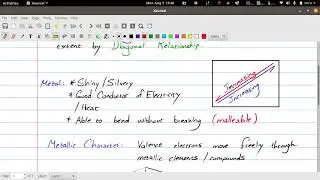 Activities
Xournal
Mon Aug 3 13:46
Xournal
extent by Diagonal Relationship.
Metal: * Shiny / Silvery
* Good Conductor of Electricity
/ Heat
* Able to bend without breaking (malleable)
Increasing
Increasing
Metallic Character: Valence electrons move freely through
metallic elements / compounds